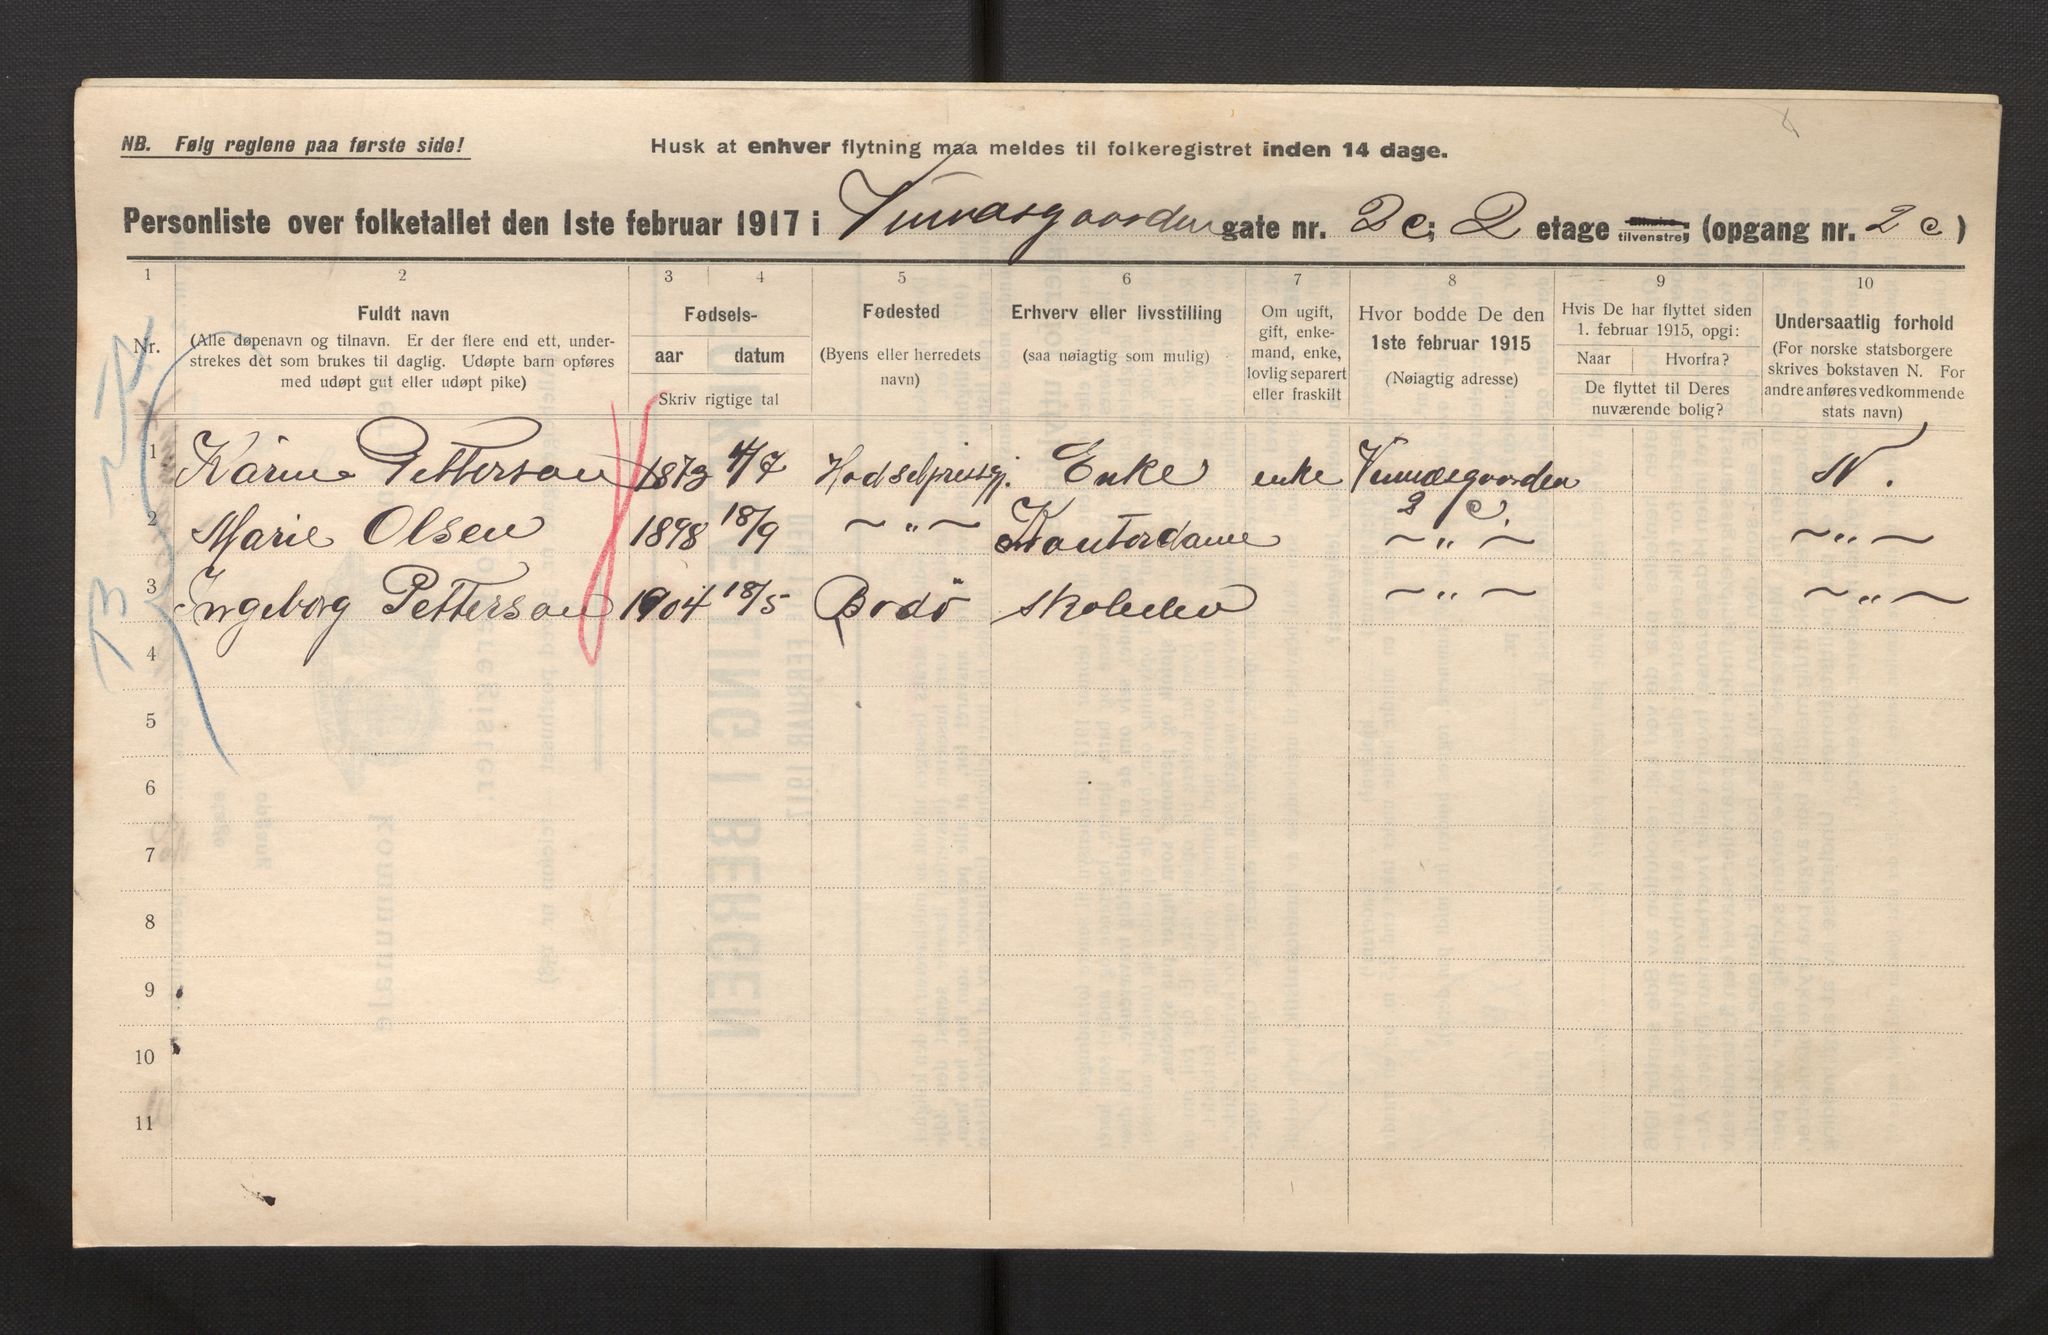 NB. Følg reglene paa første side!
Husk at enhver flytning maa meldes til folkeregistret inden 14 dage.
Personliste over folketallet den 1ste februar 1917 i Vinnæsgaarden gate nr. 2 c; 2 etage tilvenstre, (opgang nr. 2 c)
1 2 3 4 5 6 7 8 9 10
Nr.
Fuldt navn
(Alle døpenavn og tilnavn. Er der flere end ett, under-
strekes det som brukes til daglig. Udøpte barn opføres
med udøpt gut eller udøpt pike)
Fødsels-
aar datum
Skriv rigtige tal
Fødested
(Byens eller herredets
navn)
Erhverv eller livsstilling
(saa nøiagtig som mulig)
Om ugift,
gift, enke-
mand, enke,
lovlig separert
eller fraskilt
Hvor bodde De den
1ste februar 1915
(Nøiagtig adresse)
Hvis De har flyttet siden
1. februar 1915, opgi:
Naar Hvorfra?
De flyttet til Deres
nuværende bolig?
Undersaatlig forhold
(For norske statsborgere
skrives bokstaven N. For
andre anføres vedkommende
stats navn)
1 Karine Petterson 1873 4/7 Hadselpresgj. Enke enke Vinnæsgaarden N.
2 c.
2 Marie Olsen 1898 18/9 ~ " ~ Kontordame ~ " ~ ~ " ~
3 Ingeborg Petterson 1904 18/5 Bodö skoleelev ~ " ~ ~ " ~
4
5
6
7
8
9
10
11